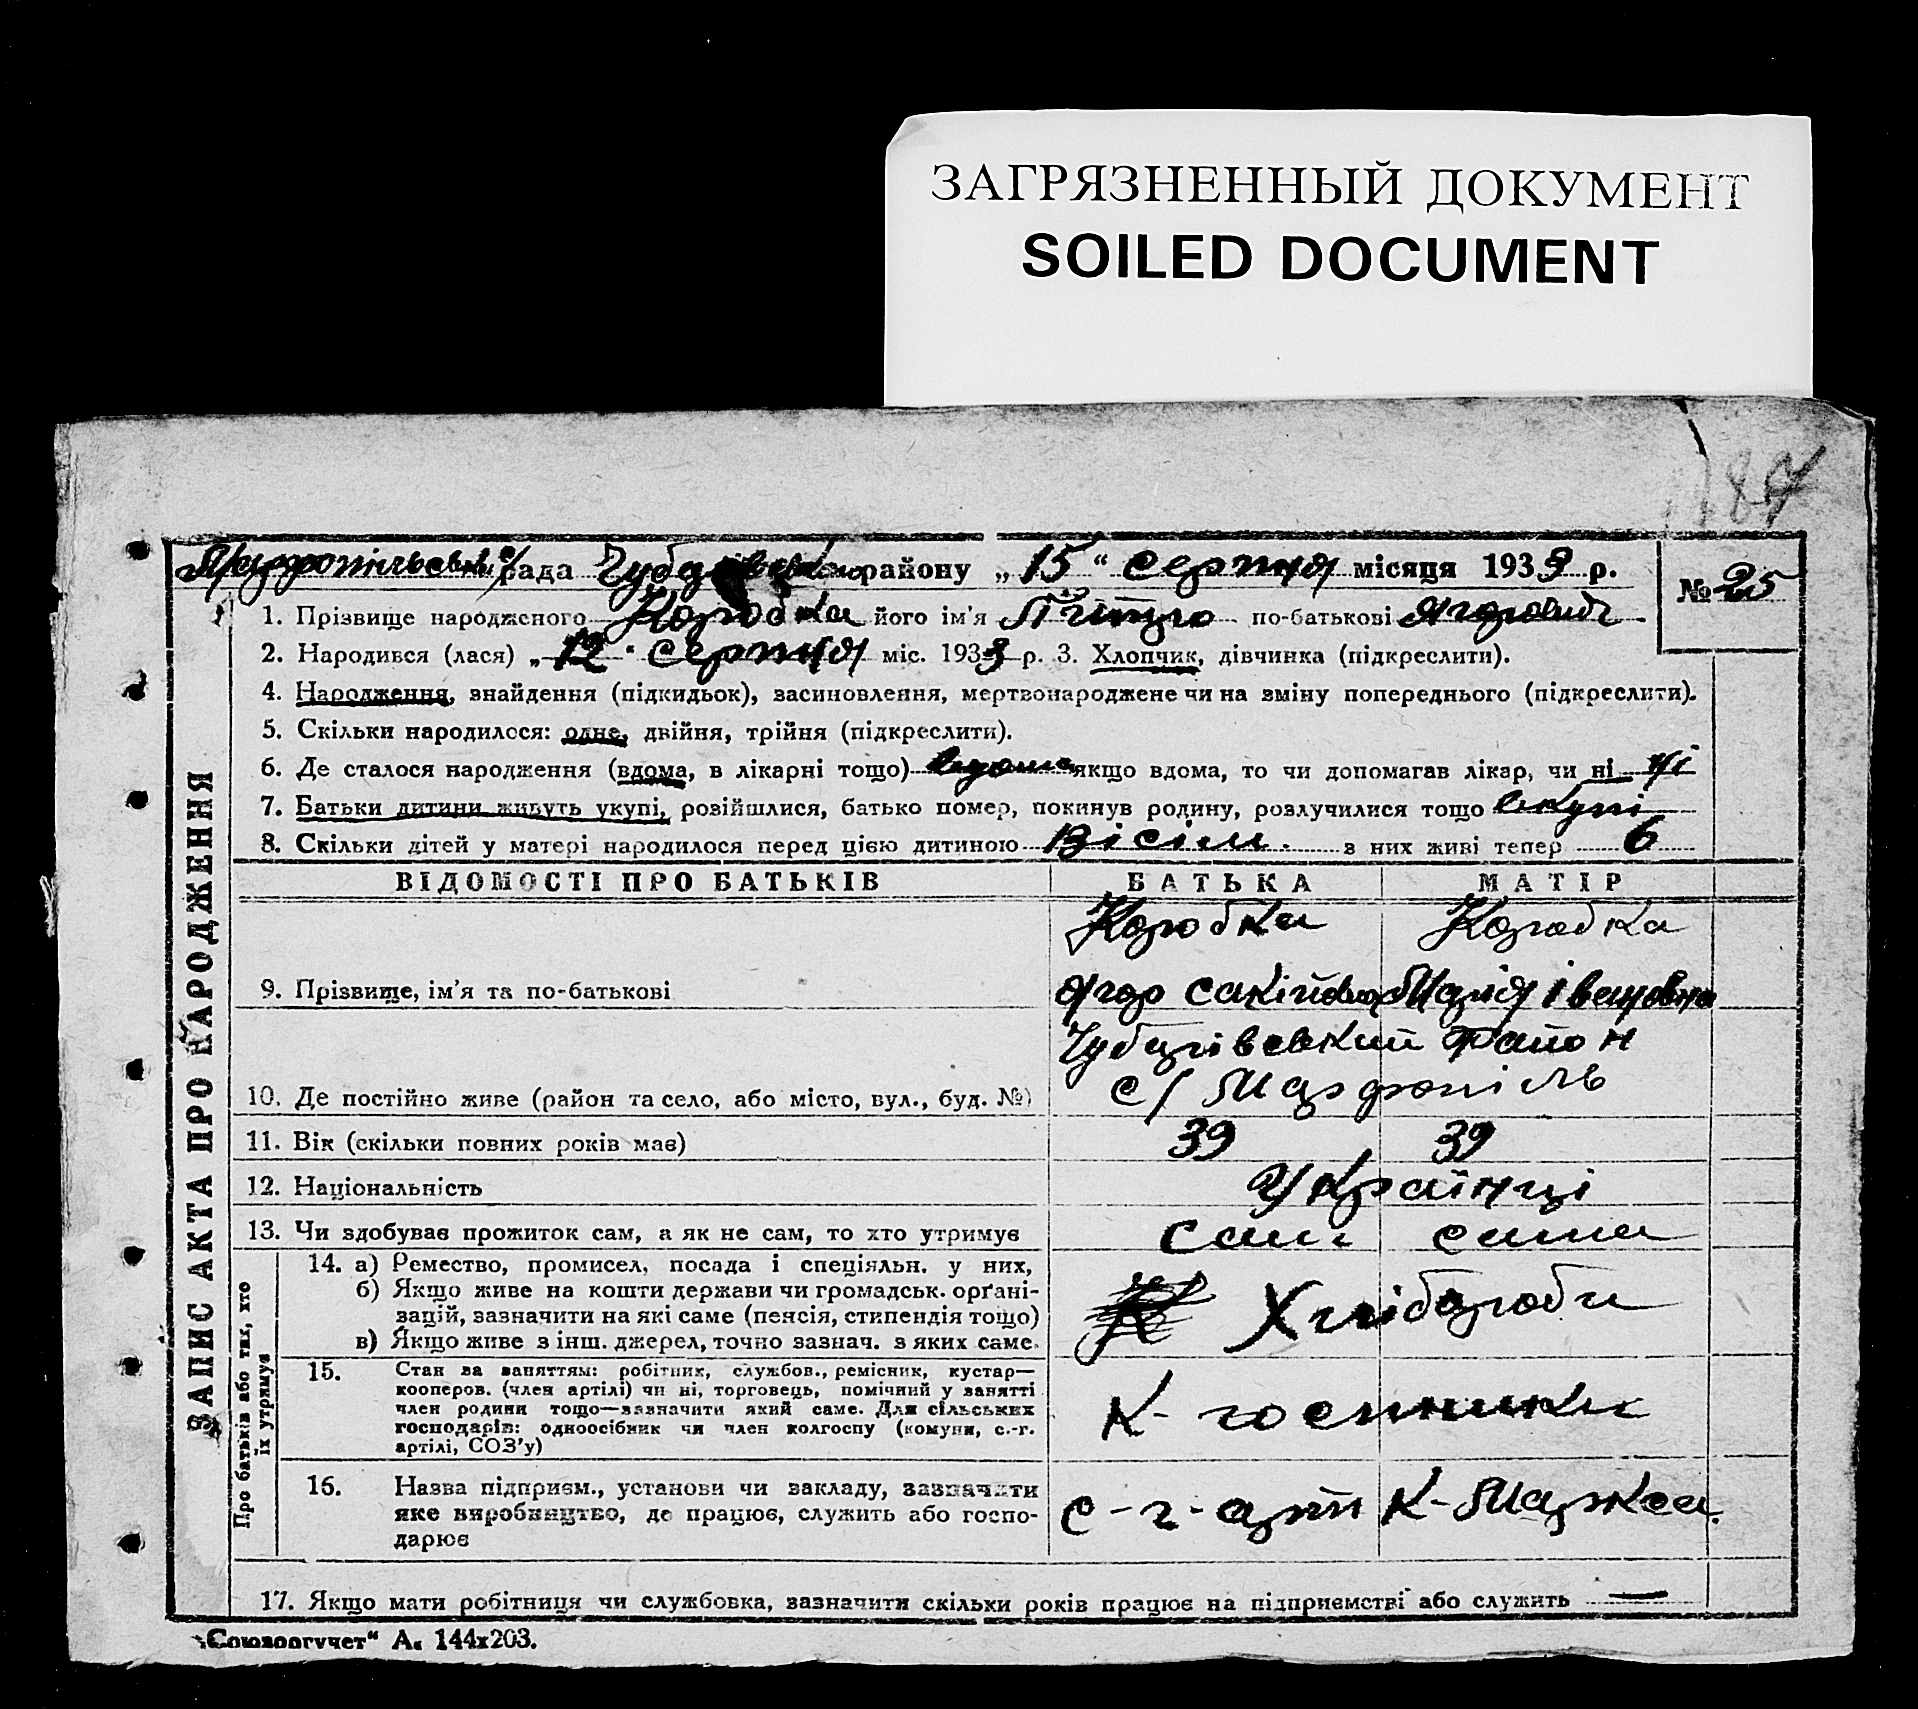 ЗАГРЯЗНЕННЫЙ ДОКУМЕНТ
SOILED DOCUMENT
187
Марфопільськ с/рада Чубарівськ району „15“ серпня місяця 1933 р.
№ 25
1. Прізвище народженого Коробка його ім'я Пйтро по-батькові Ягорович
2. Народився (лася) „12“ серпня міс. 1933 р. 3. Хлопчик, дівчинка (підкреслити).
4. Народження, знайдення (підкидьок), засиновлення, мертвонароджене чи на зміну попереднього (підкреслити).
5. Скільки народилося: одне, двійня, трійня (підкреслити).
6. Де сталося народження (вдома, в лікарні тощо) вдома якщо вдома, то чи допомагав лікар, чи ні ні
7. Батьки дитини живуть укупі, розійшлися, батько помер, покинув родину, розлучилися тощо вкупі
8. Скільки дітей у матері народилося перед цією дитиною вісім. з них живі тепер 6
ЗАПИС АКТА ПРО НАРОДЖЕННЯ
ВІДОМОСТІ ПРО БАТЬКІВ БАТЬКА МАТІР
Коробка Коробка
9. Прізвище, ім'я та по-батькові Ягор Марія Івановна
Чубарівський район
10. Де постійно живе (район та село, або місто, вул., буд. №) с/ Марфопіль
11. Вік (скільки повних років має) 39 39
12. Національність Українці
13. Чи здобував прожиток сам, а як не сам, то хто утримує сам сама
Про батьків або тих, хто їх утримує
14. а) Ремество, промисел, посада і спеціяльн. у них,
б) Якщо живе на кошти держави чи громадськ. орґані-
зацій, зазначити на які саме (пенсія, стипендія тощо) Хліборобы
в) Якщо живе з інш. джерел, точно зазнач. з яких саме.
15. Стан за заняттям: робітник, службов., ремісник, кустар—
кооперов. (член артілі) чи ні, торговець, помічний у занятті
член родини тощо—зазначити який саме. Для сільських К-госпники
господарів: одноосібник чи член колгоспу (комуни, с.-г.
артілі, СОЗ'у)
16. Назва підприєм., установи чи закладу, зазначити
яке виробництво, де працює, служить або госпо- с-г-арт К-Маркса.
дарює
17. Якщо мати робітниця чи службовка, зазначити скільки років працює на підприємстві або служить —
„Союзоргучет“ А. 144х203.